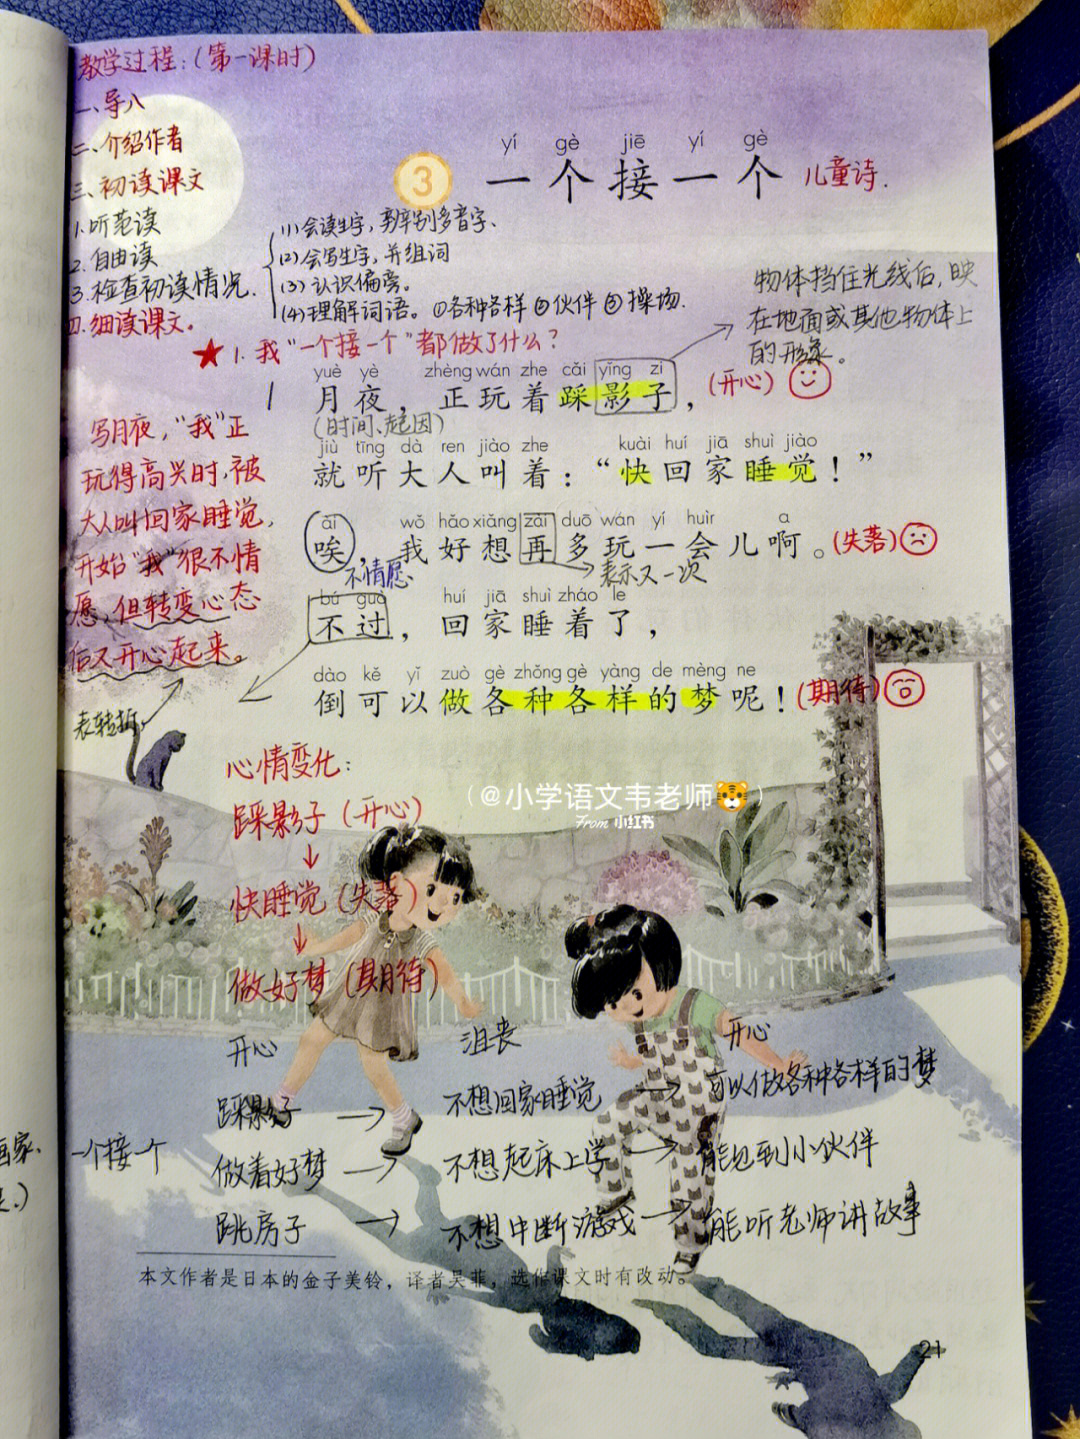 教学过程:(第一课时)
一、导入
二、介绍作者
三、初读课文
1.听范读
2.自由读
3.检查初读情况.
(1)会读生字,辨别多音字、
(2)会写生字,并组词
(3)认识偏旁。
(4)理解词语。①各种各样②伙伴③操场.
四.细读课文。
yí gè jiē yí gè
3 一个接一个 儿童诗.
物体挡住光线后,映
在地面或其他物体上
的形象。
★ 1. 我"一个接一个"都做了什么?
yuè yè zhèng wán zhe cǎi yǐng zi
1 月夜,正玩着踩影子,(开心)
(时间、起因)
jiù tīng dà ren jiào zhe kuài huí jiā shuì jiào
就听大人叫着:“快回家睡觉!”
āi wǒ hǎo xiǎng zài duō wán yí huìr a
唉,我好想再多玩一会儿啊。(失落)
不情愿、
表示又一次
bú guò huí jiā shuì zháo le
不过,回家睡着了,
dào kě yǐ zuò gè zhǒng gè yàng de mèng ne
倒可以做各种各样的梦呢!(期待)
写月夜,“我”正
玩得高兴时,被
大人叫回家睡觉,
开始“我”很不情
愿,但转变心态
后又开心起来。
表转折
心情变化:
踩影子(开心)
↓
快睡觉(失落)
↓
做好梦(期待)
(@小学语文韦老师🐯)
From 小红书
开心 沮丧 开心
踩影子 → 不想回家睡觉 → 可以做各种各样的梦
画家. 一个接一个 做着好梦 → 不想起床上学 → 能见到小伙伴
跳房子 → 不想中断游戏 → 能听老师讲故事
本文作者是日本的金子美铃,译者吴菲,选作课文时有改动。
21